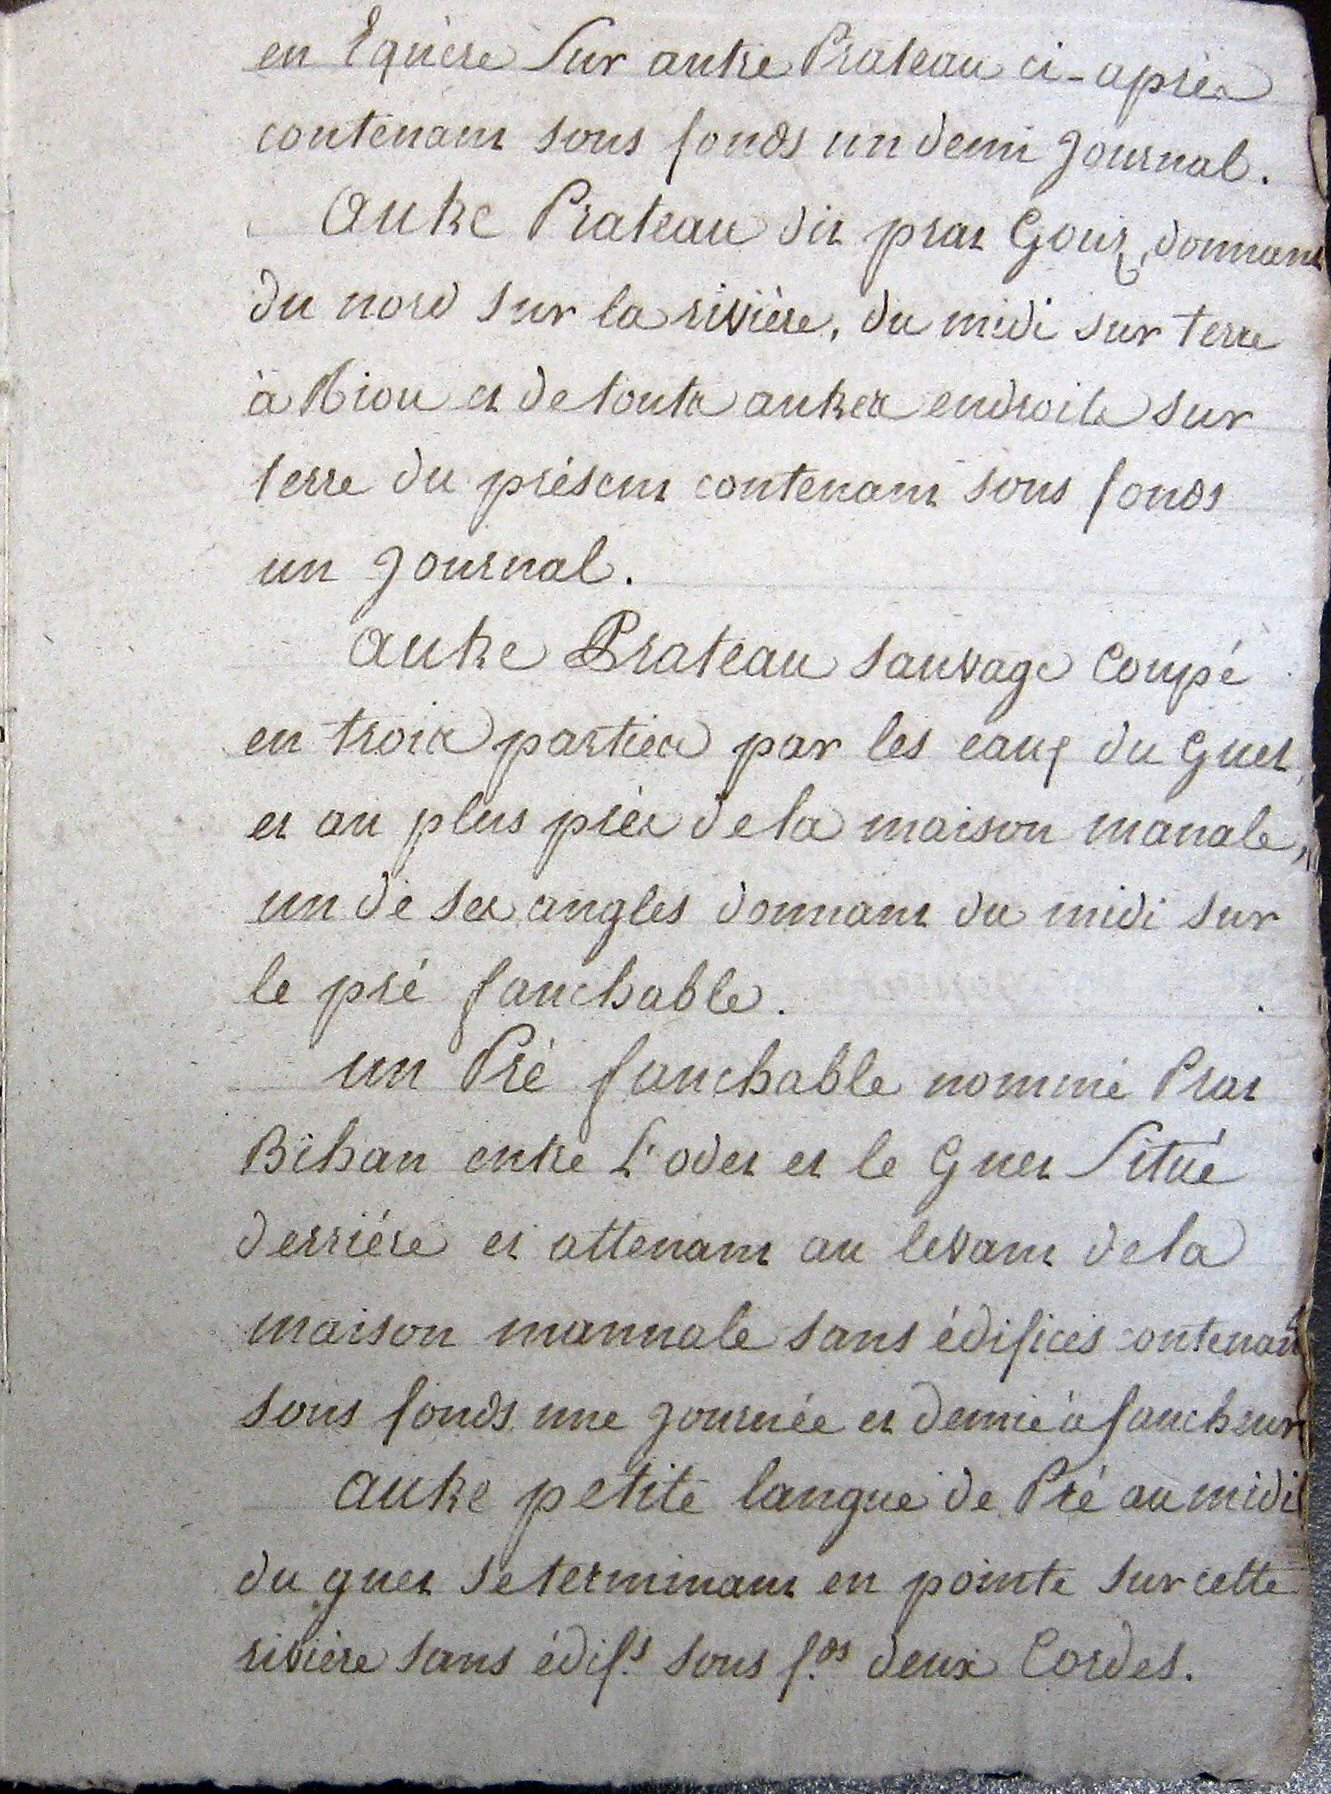 en Equère sur autre Prateau ci-après
contenant sous fonds un demi Journal.
autre Prateau dit prat Gouz, donnant
du nord sur la rivière, du midi sur terre
à Riou et de touts autres endroits sur
terre du présent contenant sous fonds
un Journal.
autre Prateau sauvage Coupé
en trois parties par les eaux du Guet,
et au plus près de la maison manale,
un de ses angles donnant du midi sur
le pré fauchable.
un Pré fauchable nommé Prat
Bihan entre l'odet et le Guet Situé
derrière et attenant au levant de la
maison mannale sans édifices contenant
sous fonds une journée et demie à faucheur
autre petite langue de Pré au midi
du guet se terminant en pointe sur cette
rivière sans édif.s sous f.ds deux Cordes.